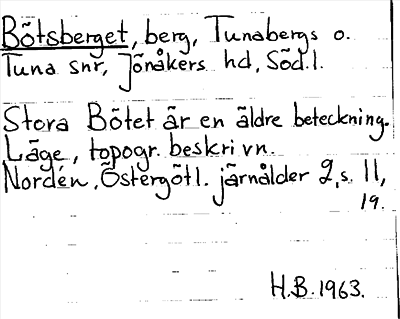 Bötsberget, berg, Tunabergs o.
Tuna snr, Jönåkers hd, Södl.
Stora Bötet är en äldre beteckning.
Läge, topogr. beskrivn.
Nordén, Östergötl. järnålder 2, s. 11,
19.
H.B. 1963.